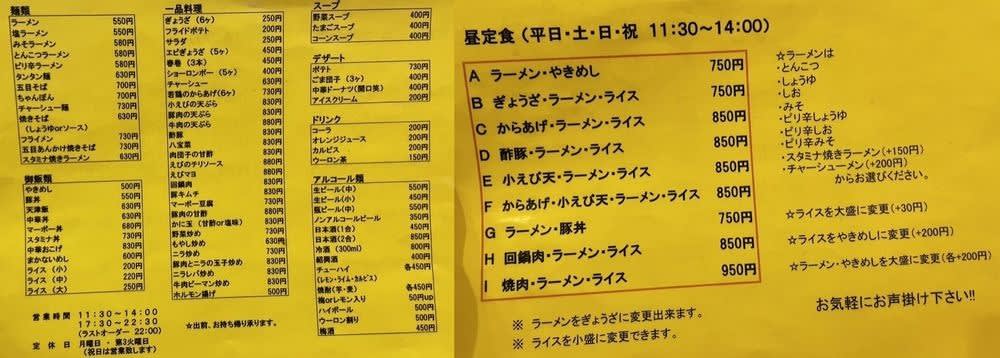 麺類
ラーメン 550円
塩ラーメン 550円
みそラーメン 550円
とんこつラーメン 550円
ピリ辛ラーメン 550円
タンタン麺 630円
五目そば 700円
ちゃんぽん 700円
チャーシュー麺 730円
焼きそば 630円
(しょうゆorソース)
フライメン 730円
五目あんかけ焼きそば 730円
スタミナ焼きラーメン 630円
御飯類
やきめし 500円
豚丼 500円
天津飯 630円
中華丼 630円
マーボ丼 630円
スタミナ丼 630円
中華おこげ 830円
まかないめし 600円
ライス (小) 200円
ライス (中) 220円
ライス (大) 250円
営業時間 11:30~14:00
17:30~22:30
(ラストオーダー 22:00)
定休日 月曜日・第3火曜日
(祝日は営業致します)
一品料理
ぎょうざ (6ヶ) 250円
フライドポテト 200円
サラダ 250円
エビぎょうざ (5ヶ) 450円
春巻 (3本) 450円
ショーロンポー (5ヶ)
チャーシュー
若鶏のからあげ(6ヶ)
小えびの天ぷら
豚肉の天ぷら
牛肉の天ぷら
酢豚
八宝菜
肉団子の甘酢
えびのチリソース
えびマヨ
回鍋肉
豚キムチ
マーボー豆腐
豚肉の甘酢
かに玉 (甘酢or塩味)
野菜炒め
もやし炒め
ニラ炒め
豚肉とニラの玉子炒め
ニラレバ炒め
牛肉ピーマン炒め
ホルモン揚げ 500円
☆出前、お持ち帰り承ります。
スープ
野菜スープ 400円
たまごスープ 400円
コーンスープ 400円
デザート
ポテト 730円
ごま団子 (3ヶ) 400円
中華ドーナツ(開口笑) 400円
アイスクリーム 200円
ドリンク
コーラ 200円
オレンジジュース 200円
カルピス 200円
ウーロン茶 150円
アルコール類
生ビール(中) 550円
生ビール(小) 450円
瓶ビール(中) 550円
ノンアルコールビール 350円
日本酒(1合) 450円
日本酒(2合) 850円
冷酒 (300ml) 800円
紹興酒 400円
チューハイ 各450円
(レモン・ライム・カルピス)
焼酎(芋・麦) 各450円
梅orレモン入り 50円up
ハイボール 500円
ウーロン割り 500円
梅酒 450円
昼定食 (平日・土・日・祝 11:30~14:00)
A ラーメン・やきめし 750円
B ぎょうざ・ラーメン・ライス 750円
C からあげ・ラーメン・ライス 850円
D 酢豚・ラーメン・ライス 850円
E 小えび天・ラーメン・ライス 850円
F からあげ・小えび天・ラーメン・ライス 850円
G ラーメン・豚丼 750円
H 回鍋肉・ラーメン・ライス 850円
I 焼肉・ラーメン・ライス 950円
※ ラーメンをぎょうざに変更出来ます。
※ ライスを小盛に変更できます。
☆ラーメンは
・とんこつ
・しょうゆ
・しお
・みそ
・ピリ辛しょうゆ
・ピリ辛しお
・ピリ辛みそ
・スタミナ焼きラーメン(+150円)
・チャーシューメン(+200円)
からお選びください。
☆ライスを大盛に変更(+30円)
☆ライスをやきめしに変更(+200円)
☆ラーメン・やきめしを大盛に変更(各+200円)
お気軽にお声掛け下さい!!